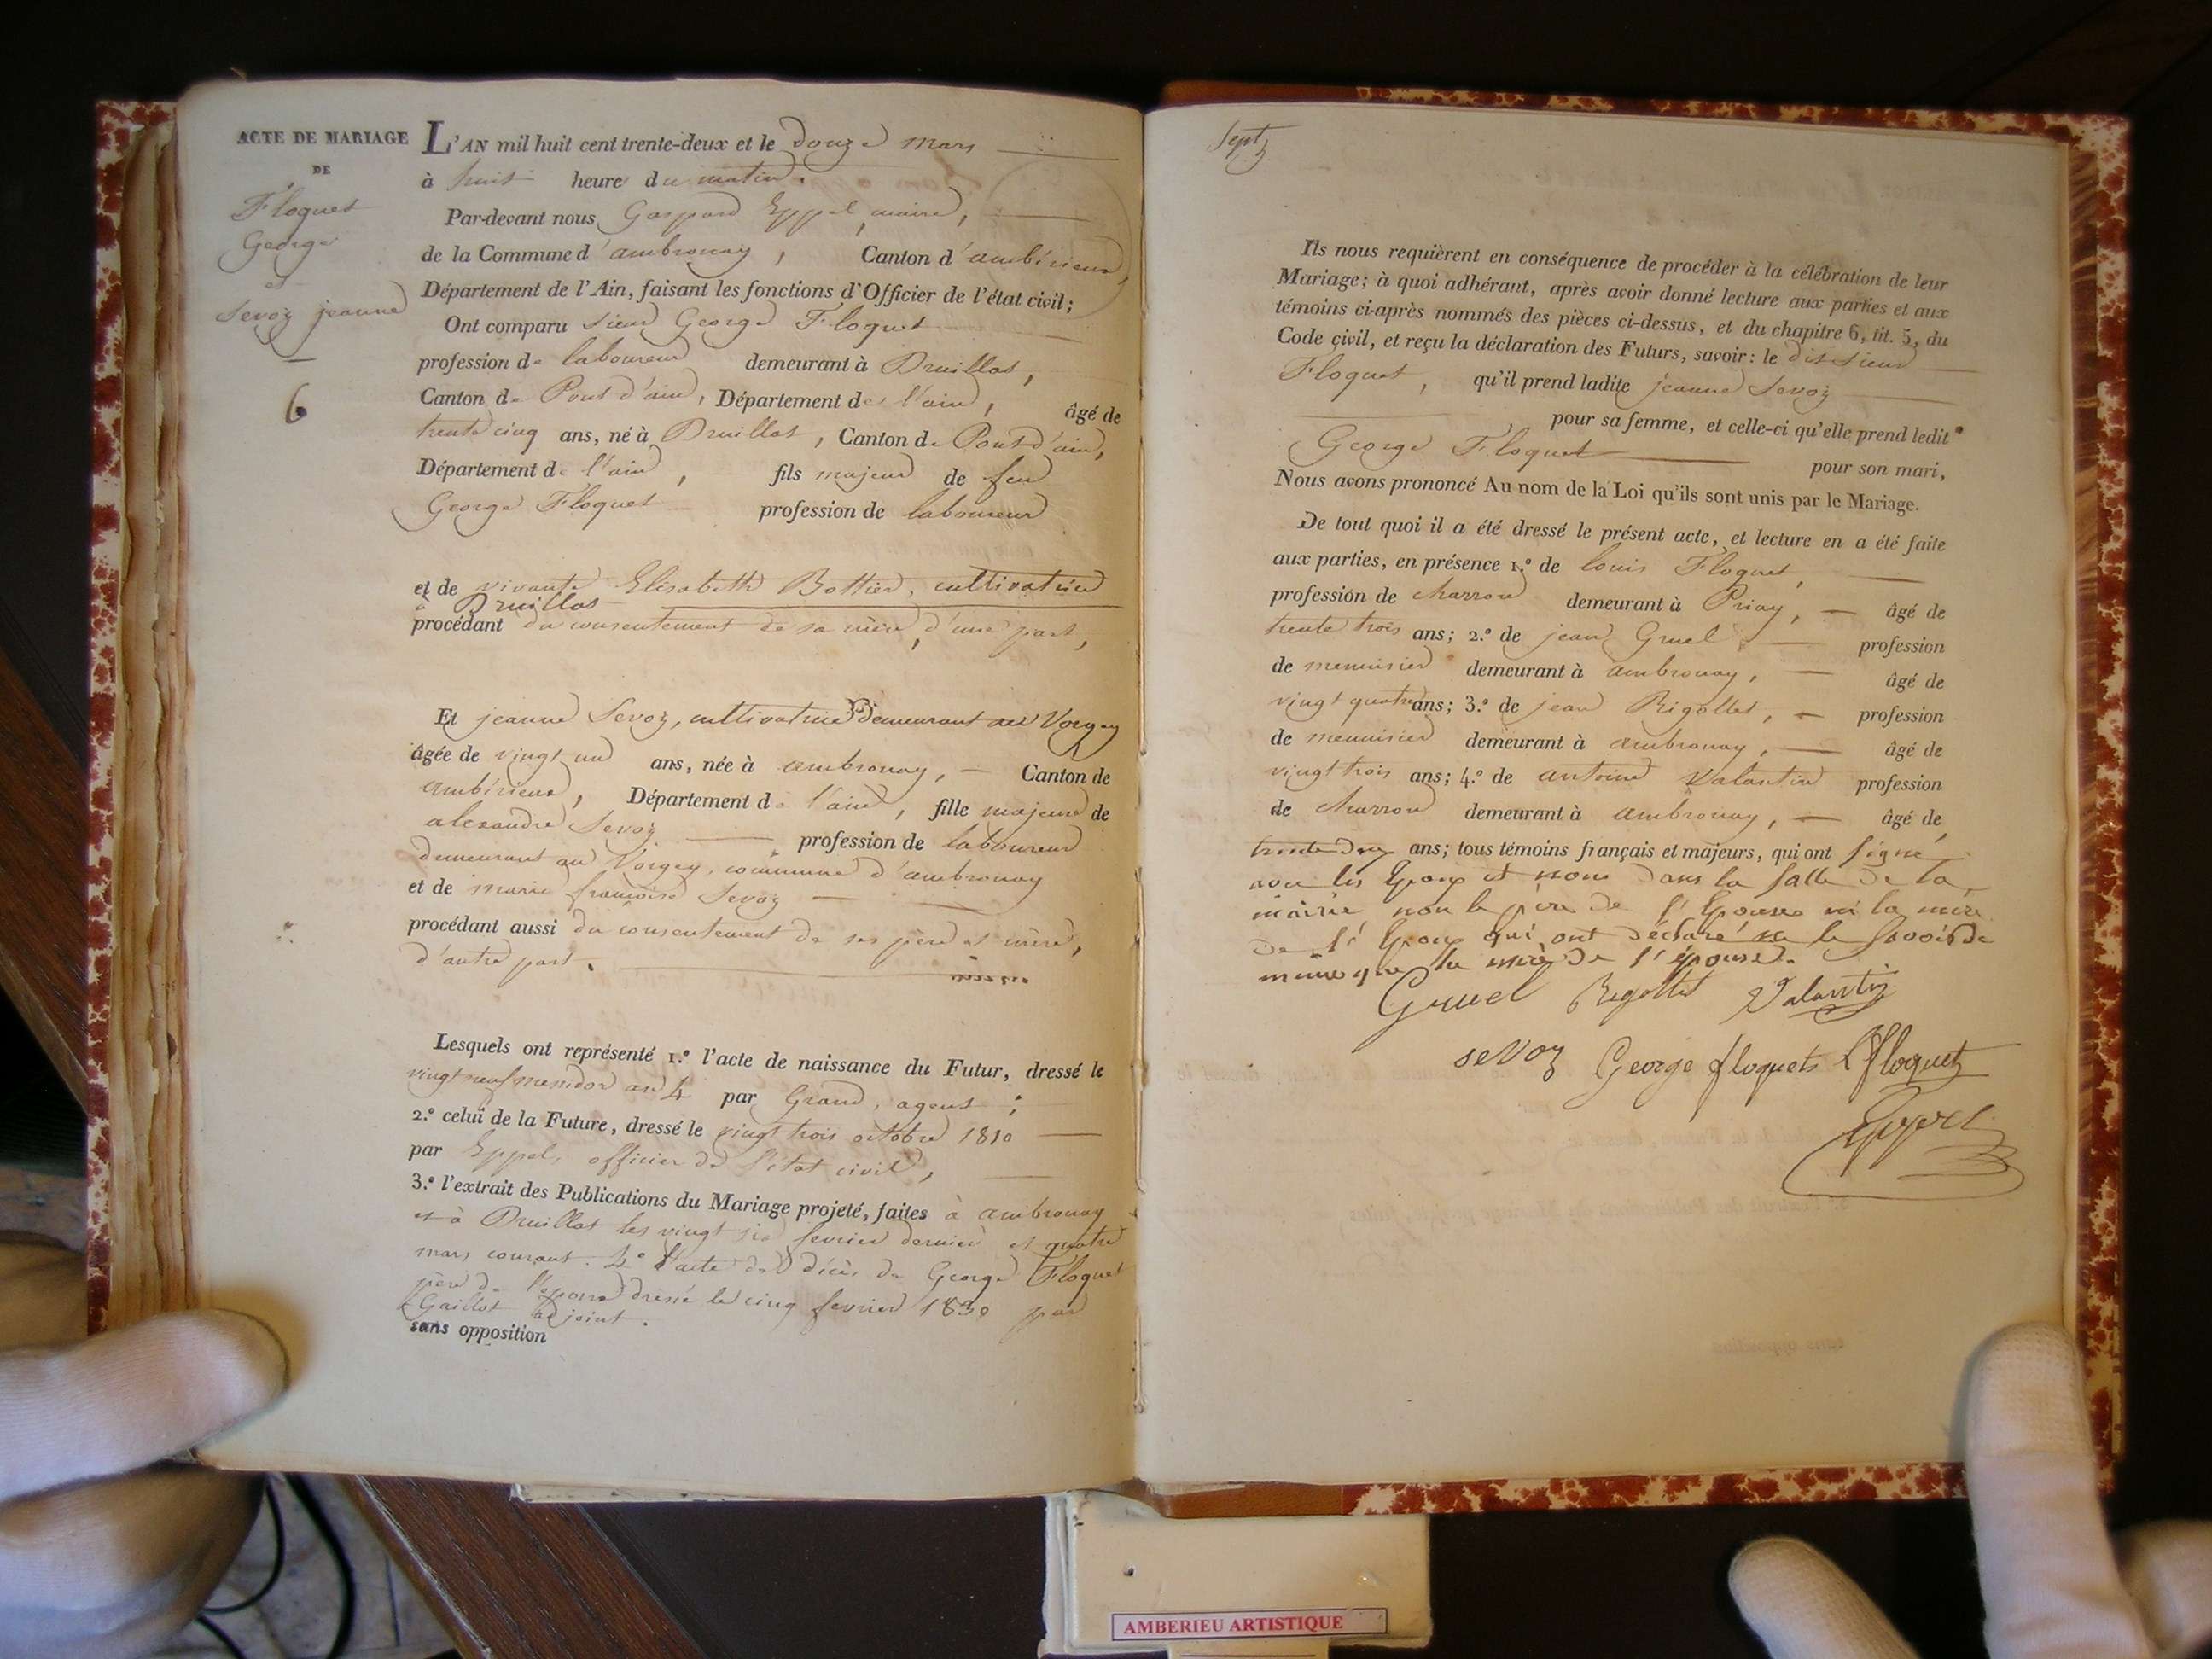 ACTE DE MARIAGE
DE
Floquet
George
et
Sevoz jeanne
6
L'AN mil huit cent trente-deux et le douze mars
à huit heure du matin.
Par-devant nous Gaspard Eppel, maire,
de la Commune d'ambronay, Canton d'ambérieux,
Département de l'Ain, faisant les fonctions d'Officier de l'état civil;
Ont comparu sieur George Floquet
profession de laboureur demeurant à Druillat,
Canton de Pont d'ain, Département de l'ain, âgé de
trente cinq ans, né à Druillat, Canton de Pont d'ain,
Département de l'ain, fils majeur de feu
George Floquet profession de laboureur
et de vivante Elisabeth Bottier, cultivatrice
à Druillat
procédant du consentement de sa mère, d'une part,
Et jeanne Sevoz, cultivatrice demeurant au Vorgey
âgée de vingt un ans, née à ambronay, Canton de
ambérieux, Département de l'ain, fille majeure de
alexandre Sevoz profession de laboureur
demeurant au Vorgey, commune d'ambronay
et de marie françoise Sevoz
procédant aussi du consentement de ses père et mère,
d'autre part.
Lesquels ont représenté 1.º l'acte de naissance du Futur, dressé le
vingt neuf messidor an 4 par Grand, agent;
2.º celui de la Future, dressé le vingt trois octobre 1810
par Eppel, officier de l'état civil,
3.º l'extrait des Publications du Mariage projeté, faites à ambronay
et à Druillat les vingt six fevrier dernier et quatre
mars courant. 4º l'acte de décès de George Floquet
père de l'epoux dressé le cinq fevrier 1830 par
Gaillot adjoint.
sans opposition
Sept
Ils nous requièrent en conséquence de procéder à la célébration de leur
Mariage; à quoi adhérant, après avoir donné lecture aux parties et aux
témoins ci-après nommés des pièces ci-dessus, et du chapitre 6, tit. 5, du
Code civil, et reçu la déclaration des Futurs, savoir: le dit sieur
Floquet, qu'il prend ladite jeanne Sevoz
pour sa femme, et celle-ci qu'elle prend ledit
George Floquet pour son mari,
Nous avons prononcé Au nom de la Loi qu'ils sont unis par le Mariage.
De tout quoi il a été dressé le présent acte, et lecture en a été faite
aux parties, en présence 1.º de louis Floquet,
profession de charron demeurant à Priay, âgé de
trente trois ans; 2.º de jean Gruel profession
de menuisier demeurant à ambronay, âgé de
vingt quatre ans; 3.º de jean Rigollet, profession
de menuisier demeurant à ambronay, âgé de
vingt trois ans; 4.º de antoine Valantin profession
de charron demeurant à ambronay, âgé de
trente deux ans; tous témoins français et majeurs, qui ont signé
avec les Epoux et nous dans la salle de la
mairie non le père de l'Epouse ni la mere
de l'Epoux qui ont déclaré ne le savoir de
même que la mère de l'épouse.
Gruel Regollet Valantin
sevoz George floquets L floquet
Eppel
AMBERIEU ARTISTIQUE